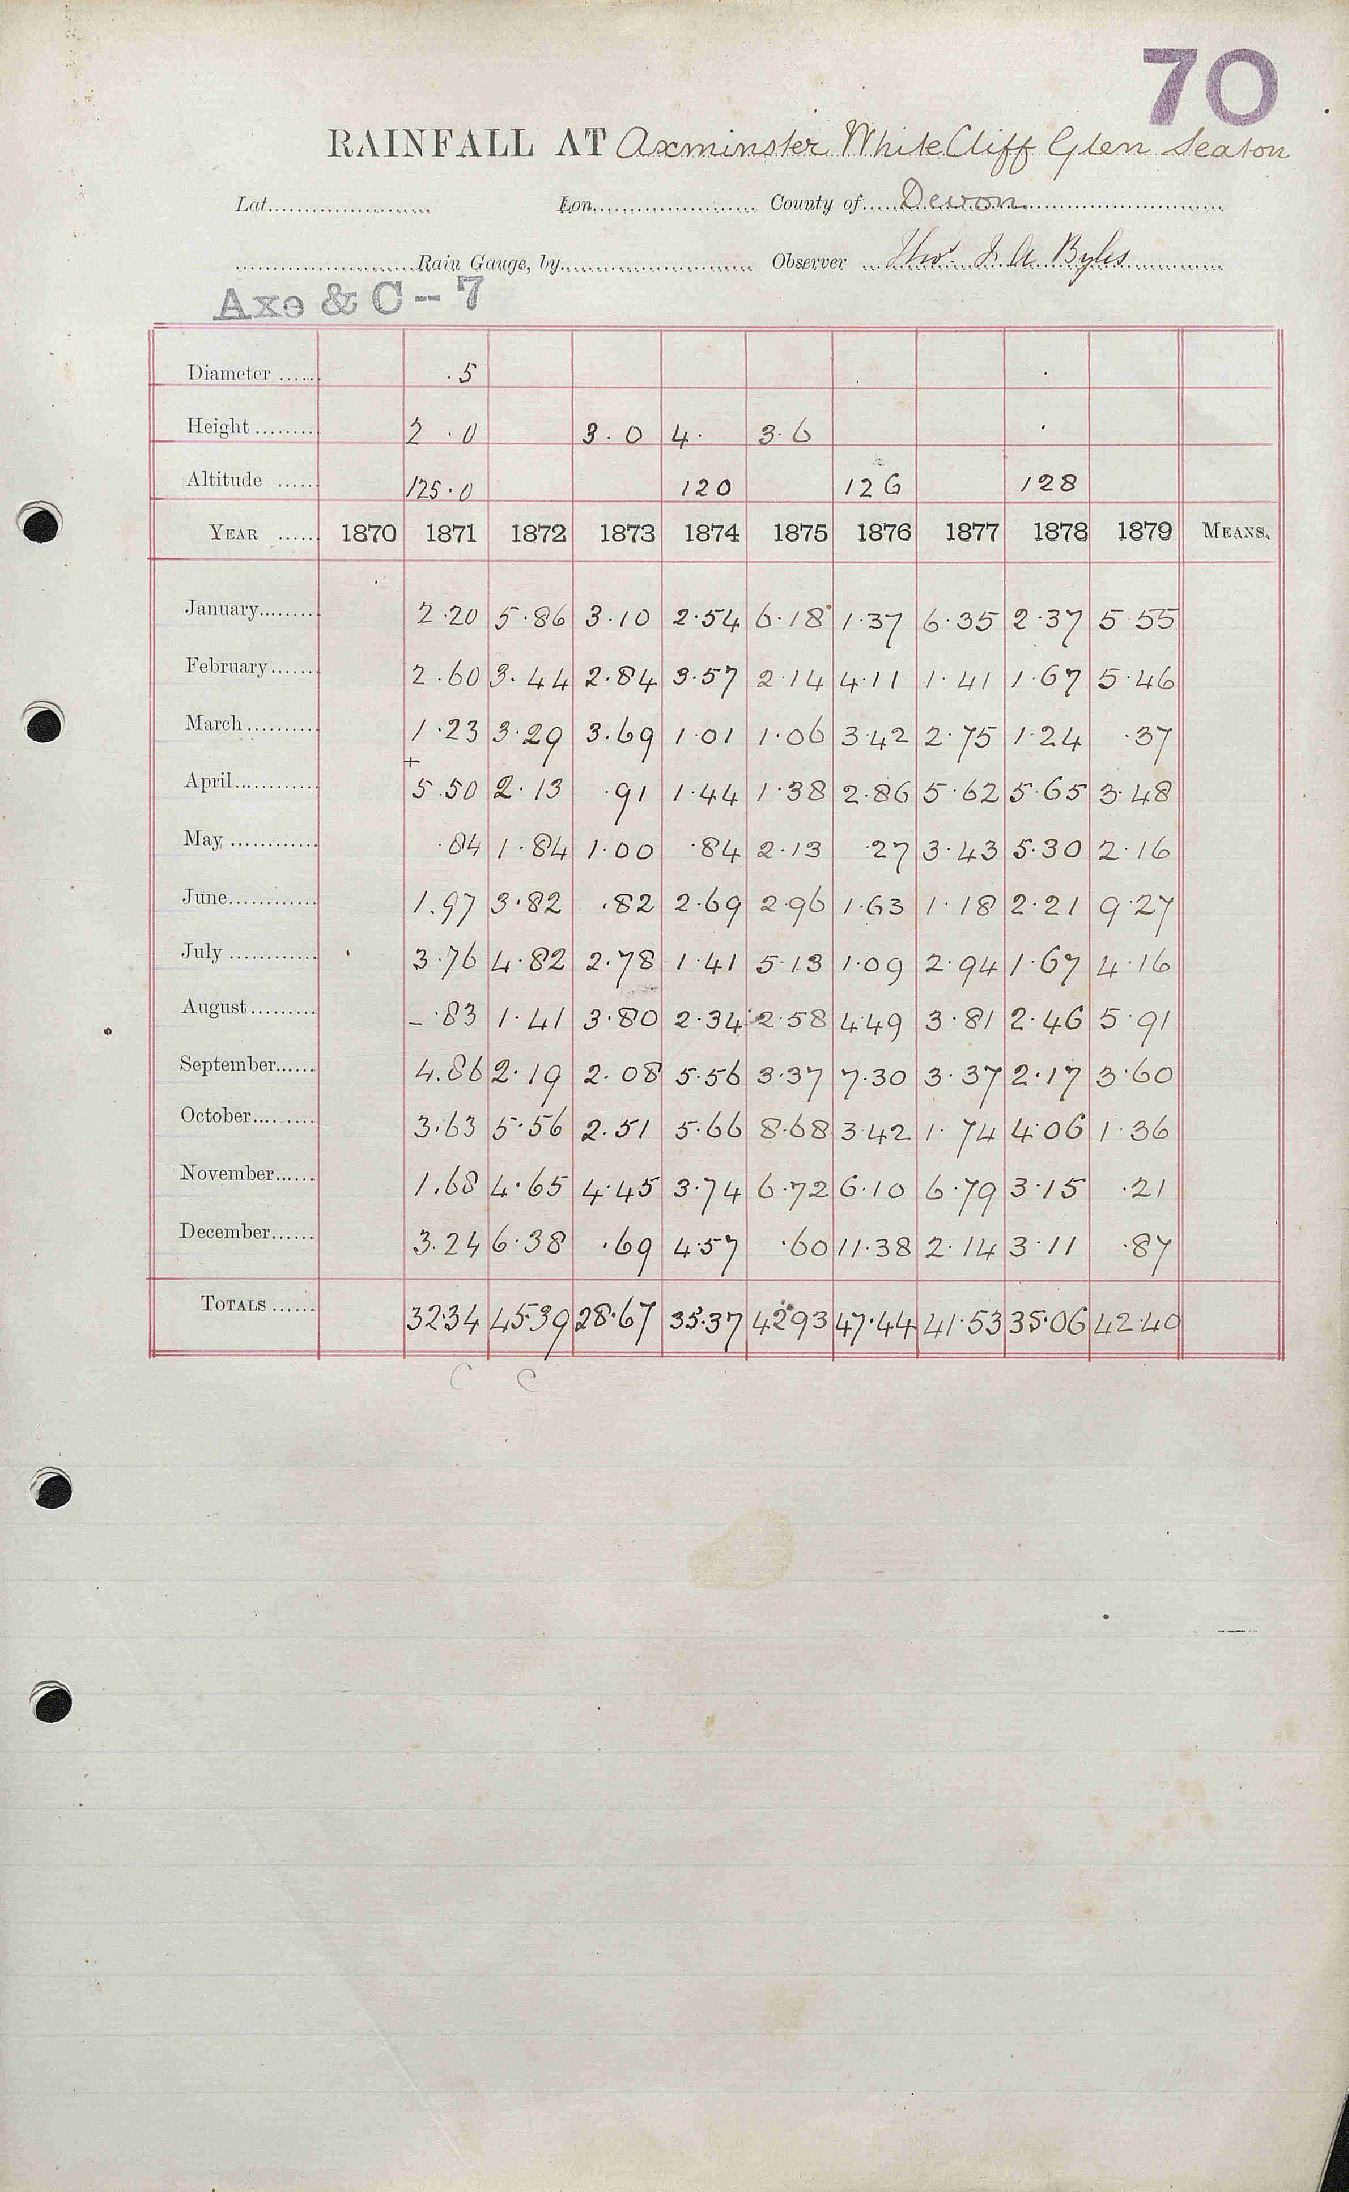 70
RAINFALL AT Axminster White Cliff Glen Seaton
Lat. Lon. County of Devon
Rain Gauge, by Observer Thos J A Byles
Axe & C - 7
Diameter 5
Height 2.0 3.0 4. 3.6
Altitude 125.0 120 126 128
YEAR 1870 1871 1872 1873 1874 1875 1876 1877 1878 1879 MEANS.
January 2.20 5.86 3.10 2.54 6.18 1.37 6.35 2.37 5.55
February 2.60 3.44 2.84 3.57 2.14 4.11 1.41 1.67 5.46
March 1.23 3.29 3.69 1.01 1.06 3.42 2.75 1.24 .37
+
April 5.50 2.13 .91 1.44 1.38 2.86 5.62 5.65 3.48
May .84 1.84 1.00 .84 2.13 .27 3.43 5.30 2.16
June 1.97 3.82 .82 2.69 2.96 1.63 1.18 2.21 9.27
July 3.76 4.82 2.78 1.41 5.13 1.09 2.94 1.67 4.16
August - .83 1.41 3.80 2.34 2.58 4.49 3.81 2.46 5.91
September 4.86 2.19 2.08 5.56 3.37 7.30 3.37 2.17 3.60
October 3.63 5.56 2.51 5.66 8.68 3.42 1.74 4.06 1.36
November 1.68 4.65 4.45 3.74 6.72 6.10 6.79 3.15 .21
December 3.24 6.38 .69 4.57 .60 11.38 2.14 3.11 .87
TOTALS 32.34 45.39 28.67 35.37 42.93 47.44 41.53 35.06 42.40
C C